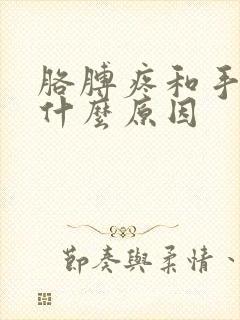 胳膊疼和手
什麼原因
節奏與柔情、